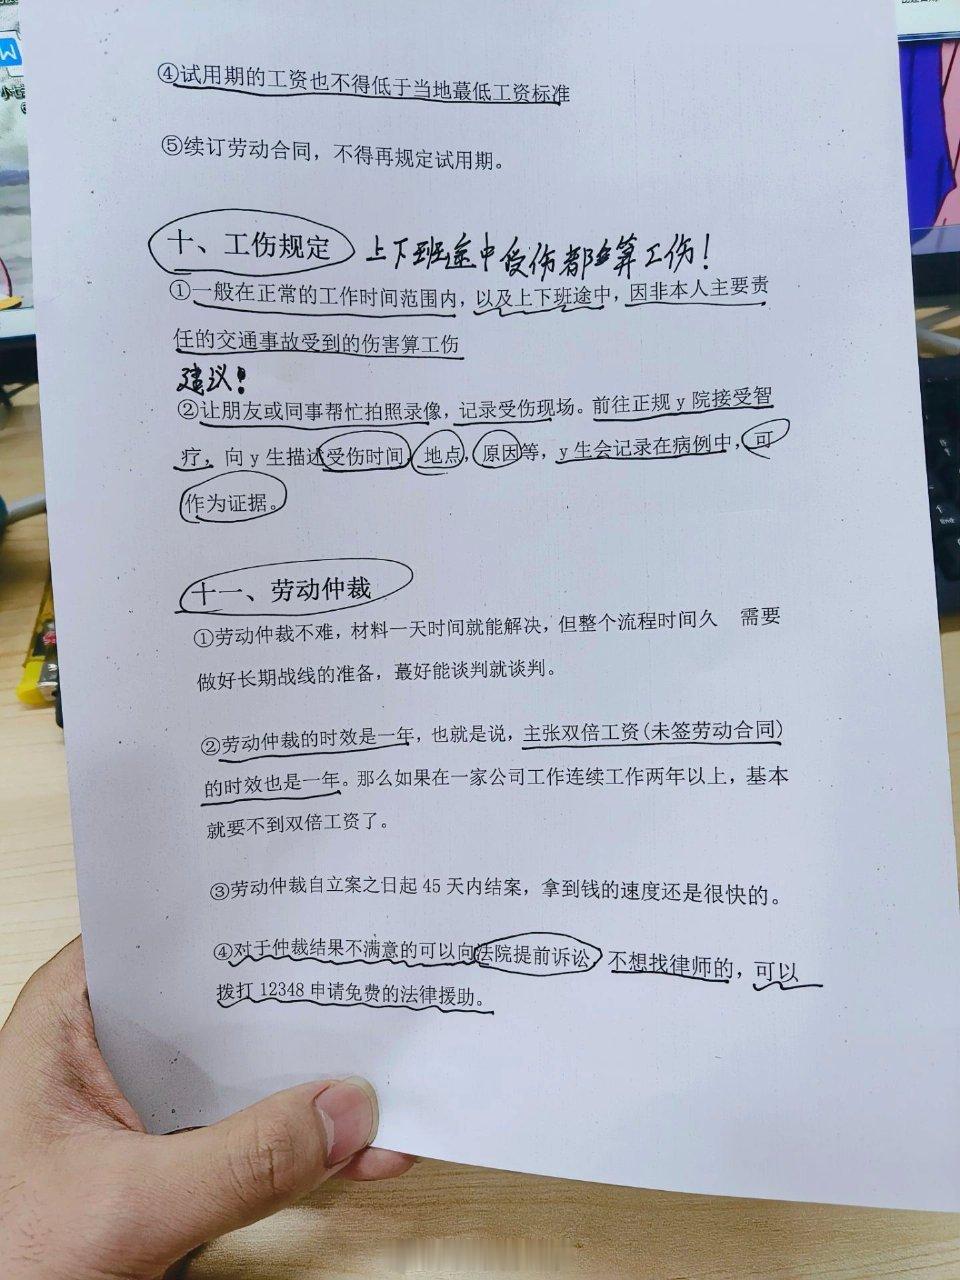 ④试用期的工资也不得低于当地蕞低工资标准
⑤续订劳动合同，不得再规定试用期。
十、工伤规定 上下班途中受伤都算工伤！
①一般在正常的工作时间范围内，以及上下班途中，因非本人主要责
任的交通事故受到的伤害算工伤
建议！
②让朋友或同事帮忙拍照录像，记录受伤现场。前往正规y院接受智
疗，向y生描述受伤时间，地点，原因等，y生会记录在病例中，可
作为证据。
十一、劳动仲裁
①劳动仲裁不难，材料一天时间就能解决，但整个流程时间久 需要
做好长期战线的准备，蕞好能谈判就谈判。
②劳动仲裁的时效是一年，也就是说，主张双倍工资(未签劳动合同)
的时效也是一年。那么如果在一家公司工作连续工作两年以上，基本
就要不到双倍工资了。
③劳动仲裁自立案之日起45天内结案，拿到钱的速度还是很快的。
④对于仲裁结果不满意的可以向法院提前诉讼，不想找律师的，可以
拨打12348申请免费的法律援助。